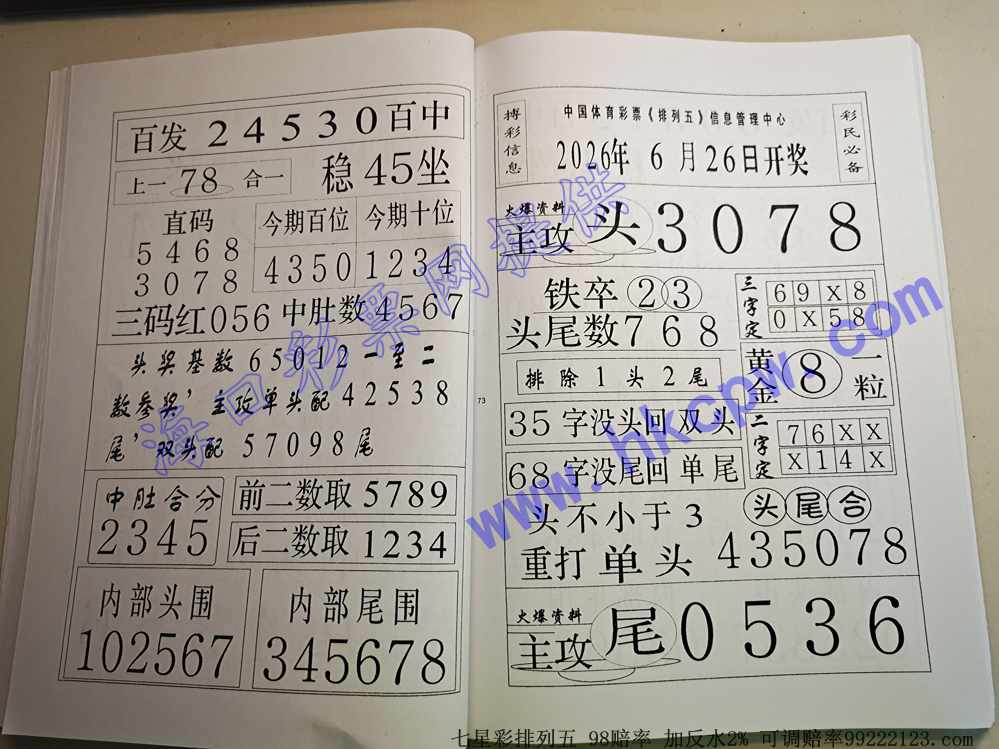 百发 24530百中
上一 78 合一
稳 45坐
直码
5468
3078
今期百位
4350
今期十位
1234
三码红056 中肚数4567
头奖基数65012一至二
数参奖，主攻单头配42538
尾，双头配 57098尾
中肚合分
2345
前二数取 5789
后二数取 1234
内部头围
102567
内部尾围
345678
73
搏彩信息
中国体育彩票《排列五》信息管理中心
2026年 6 月26日开奖
彩民必备
火爆资料
主攻 头 3078
铁卒 23
头尾数768
排除1头2尾
35 字没头回 双头
68 字没尾回 单尾
三字定
69X8
0X58
黄金 8 一粒
二字定
76XX
X14X
头不小于3
头尾合
重打 单头 435078
火爆资料
主攻 尾 0536
海口彩票网提供
www.hkcpw.com
七星彩排列五 98赔率 加反水2% 可调赔率99222123.com